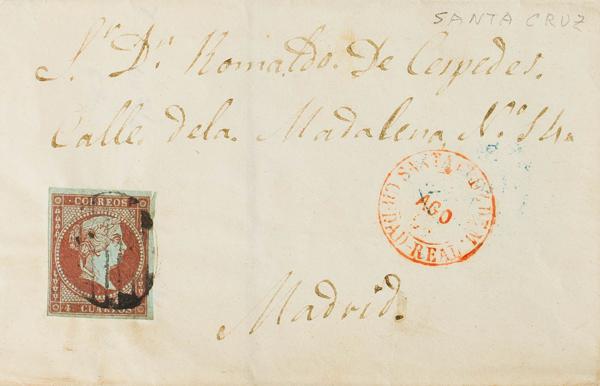 SANTA CRUZ
Sr. Dn. Romualdo. De Cespedes.
Calle. dela. Madalena. No. 14.
CORREOS
4 CUARTOS
SANTA CRUZ DE M
AGO
CIUDAD-REAL
Madrid.